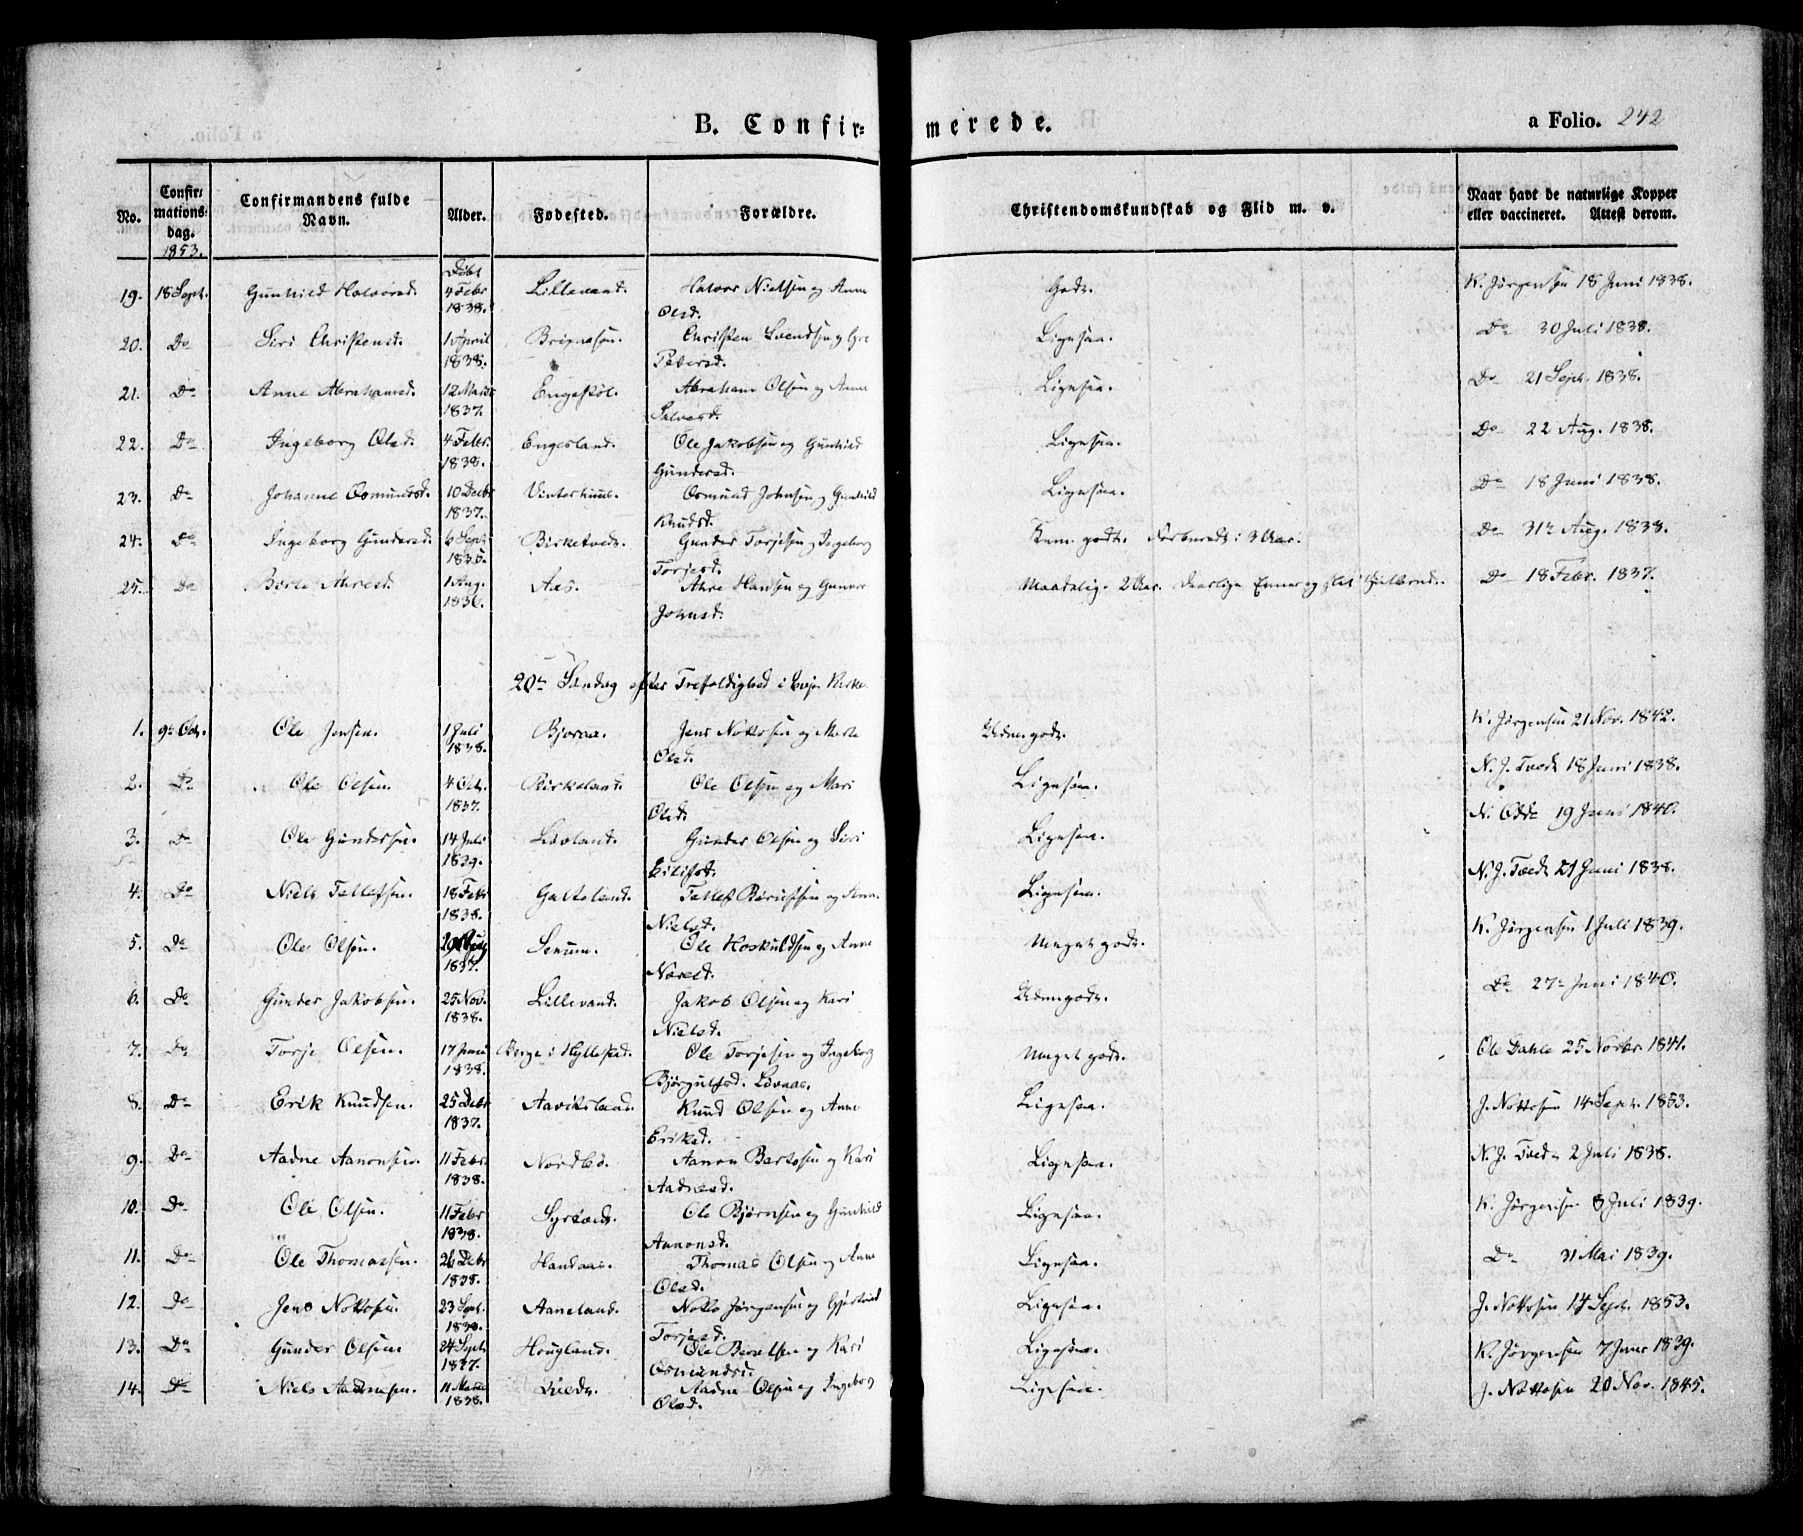 B. Confir= merede. a Folio. 242
No. Confir= mations= dag. 1853. Confirmandens fulde Navn. Alder. Fødested. Forældre. Christendomskundskab og Flid m. v. Naar havt de naturlige Kopper eller vaccineret. Attest derom.
19. 18 Sept. Gunhild Halvorsd. Døbt 4 Febr 1838. Lillevand. Halvor Nielsen og Anne Olsd. Godt. K. Jørgensen 18 Juni 1838.
20. Do Siri Christensd. 1 April 1838. Christen Svendsen og Gro Pedersd. Ligesaa. Do 30 Juli 1838.
21. Do Anne Abrahamsd. 12 Marts 1837. Engestøl. Abraham Olsen og Anne Salvesd. Ligesaa. Do 21 Sept. 1838.
22. Do Ingeborg Olsd. 4 Febr. 1838. Engesland. Ole Jakobsen og Gunhild Gundersd. Ligesaa. Do 22 Aug. 1838.
23. Do Johanne Osmundsd. 10 Decbr 1837. Osmund Johnsen og Gunhild Knudsd. Ligesaa. Do 18 Juni 1838.
24. Do Ingeborg Gundersd. 6 Sept. 1835. Birketvedt. Gunder Torjesen og Ingeborg Torjesd. godt. i 3 Aar. Do 31te Aug. 1838.
25. Do Berte Ahresd. 1 Aug. 1836. Aas. Ahre Hansen og Gunvor Johnsd. Maadelig. 2 Aar. daarlige Evner og slet Do 18 Febr. 1837.
20de Søndag efter Trefoldighed i Evje Kirke.
1. 9de Oct. Ole Jensen. 1 Juli 1838. Jens Nottosen og Marte Olsd. Udm. godt. K. Jørgensen 21 Nov. 1842.
2. Do Ole Olsen. 4 Oct. 1837. Birkeland. Ole Olsen og Mari Olsd. Ligesaa. N. J. Tvedt 18 Juni 1838.
3. Do Ole Gundersen. 14 Juli 1839. Løvland. Gunder Olsen og Siri Ligesaa. N. Odde 19 Juni 1840.
4. Do Niels Tellefsen. 18 Febr 1838. Galteland. Tellef og Anne Nielsd. Ligesaa. N. J. Tvedt 21 Juni 1838.
5. Do Ole Olsen. 1837. Senum. Ole Hoskuldsen og Anne Meget godt. K. Jørgensen 1 Juli 1839.
6. Do Gunder Jakobsen. 25 Nov. 1838. Lillevand. Jakob Olsen og Kari Nielsd. Udm. godt. Do 27de Juni 1840.
7. Do Torje Olsen. 17 Juni 1838. Berge i Hyllestad. Ole Torjesen og Ingeborg Bjørgulfsd. Løvaas. Meget godt. Ole Dahle 25 Novbr. 1841.
8. Do Erik Knudsen. 25 Decbr 1837. Aavikstrand. Knud Olsen og Anne Eriksd. Ligesaa. J. Nottosen 14 Sept. 1853.
9. Do Aadne Aanonsen. 11 Febr. 1838. Nordbø. Aanon Bertosen og Kari Aadnesd. Ligesaa. N. J. Tvedt 2 Juli 1838.
10. Do Ole Olsen. 11 Febr 1838. Syrtveit. Ole Bjørnsen og Gunhild Aanonsd. Ligesaa. K. Jørgensen 8 Juli 1839.
11. Do Ole Thomassen. 26 Decbr 1838. Handaas. Thomas Olsen og Anne Olsd. Ligesaa. Do 31 Mai 1839.
12. Do Jens Nottosen. 23 Sept. 1838. Aaneland. Notto Jørgensen og Torjesd. Ligesaa. J. Nottosen 14 Sept. 1853.
13. Do Gunder Olsen. 24 Sept. 1837. Hougland. Ole og Kari Osmundsd. Ligesaa. K. Jørgensen 7 1839.
14. Do Niels Aadnesen. 11 1838. Aadne Olsen og Ingeborg Olsd. Ligesaa. J. Nottosen 20 Nov. 1845.